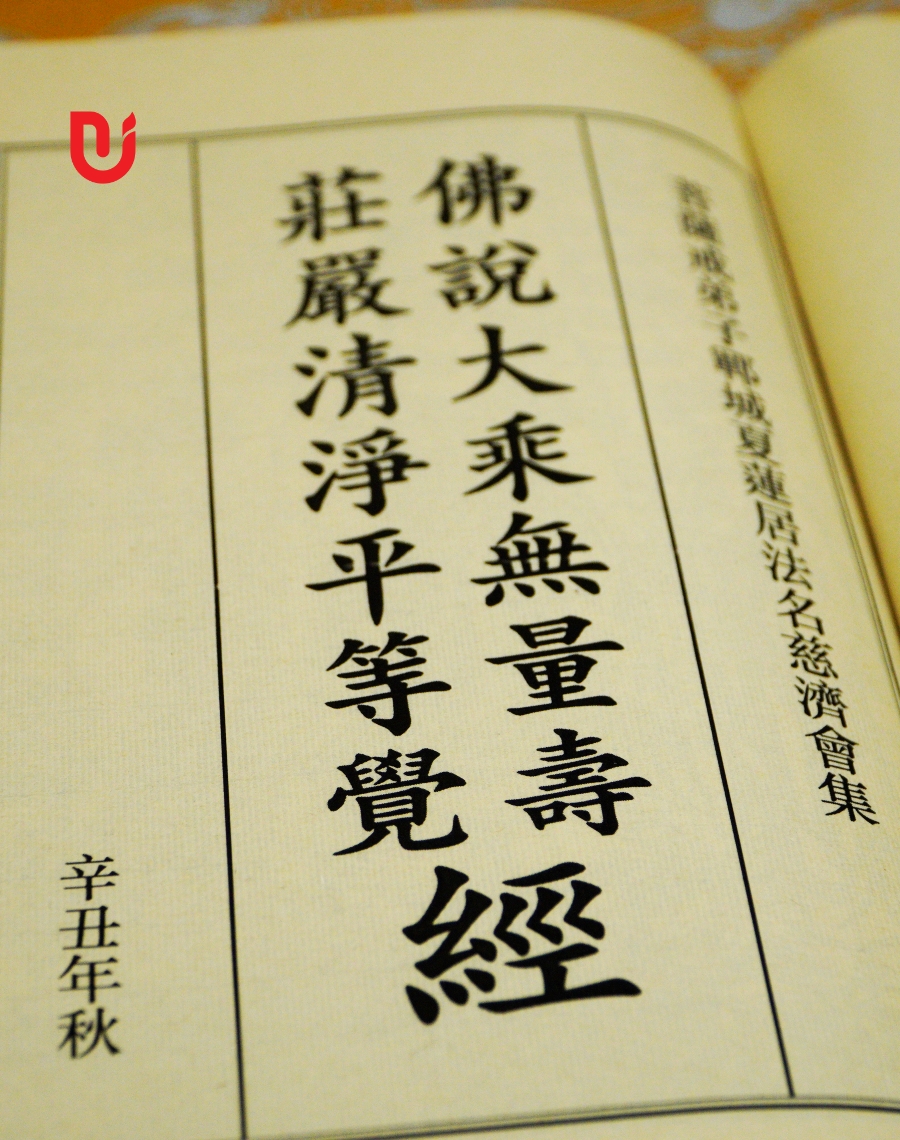 菩薩戒弟子鄆城夏蓮居法名慈濟會集
佛說大乘無量壽
莊嚴清淨平等覺
經
辛丑年秋